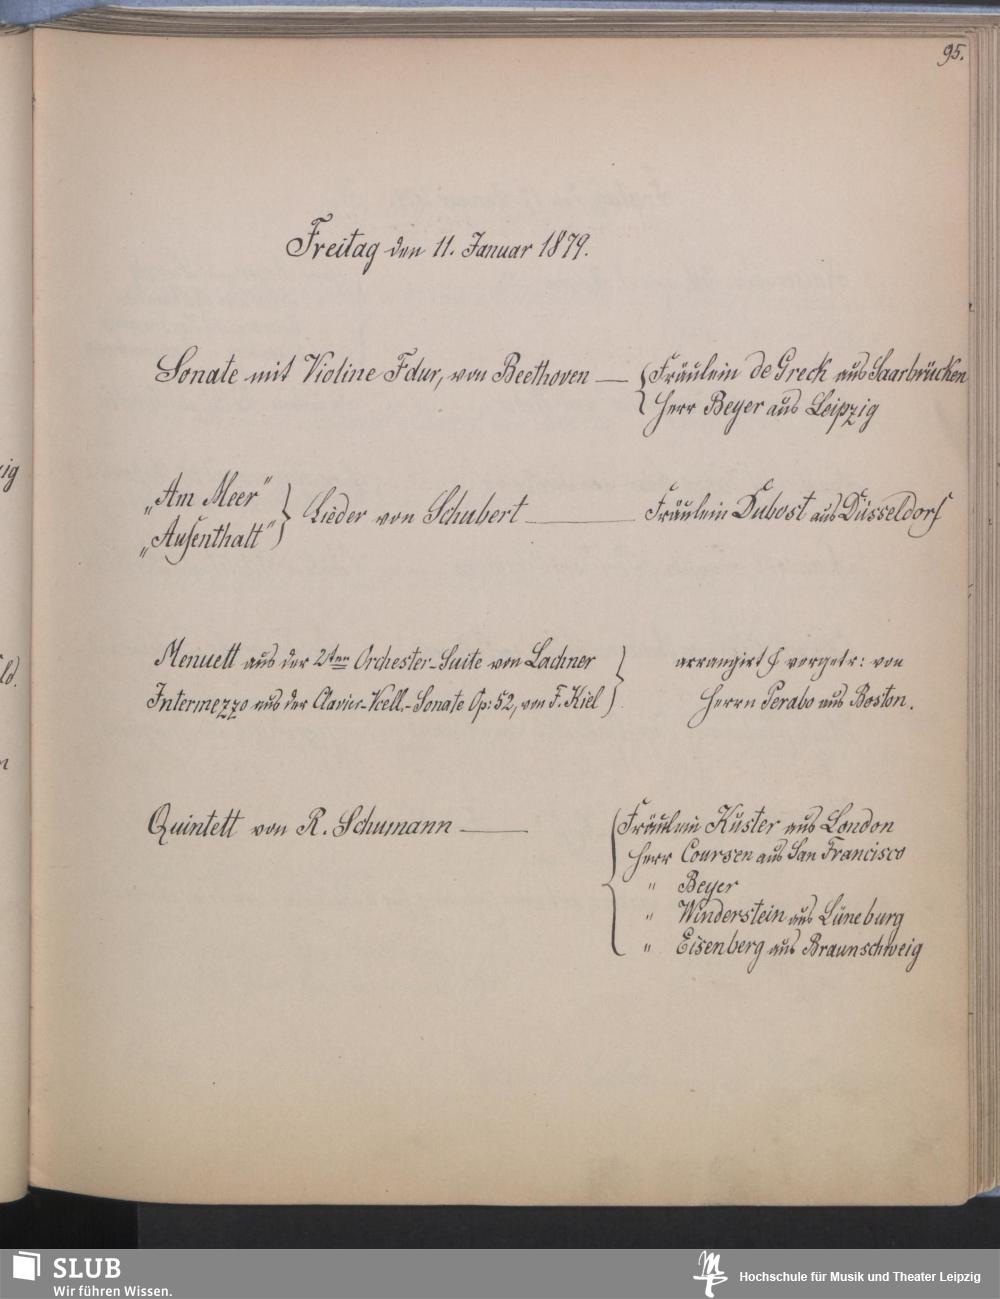 95.
Freitag den 11. Januar 1879.
Sonate mit Violine Fdur, von Beethoven — Fräulein de Greck aus Saarbrücken
Herr Beyer aus Leipzig
„Am Meer"
„Aufenthalt" Lieder von Schubert — Fräulein Dubost aus Düsseldorf
Menuett aus der 2ten Orchester-Suite von Lachner arrangirt & vorgetr: von
Intermezzo aus der Clavier-Vcell.-Sonate Op: 52, von F. Kiel Herrn Perabo aus Boston.
Quintett von R. Schumann — Fräulein Küster aus London
Herr Coursen aus San Francisco
" Beyer
" Winderstein aus Lüneburg
" Eisenberg aus Braunschweig
ig
ld.
n
SLUB
Wir führen Wissen.
Hochschule für Musik und Theater Leipzig